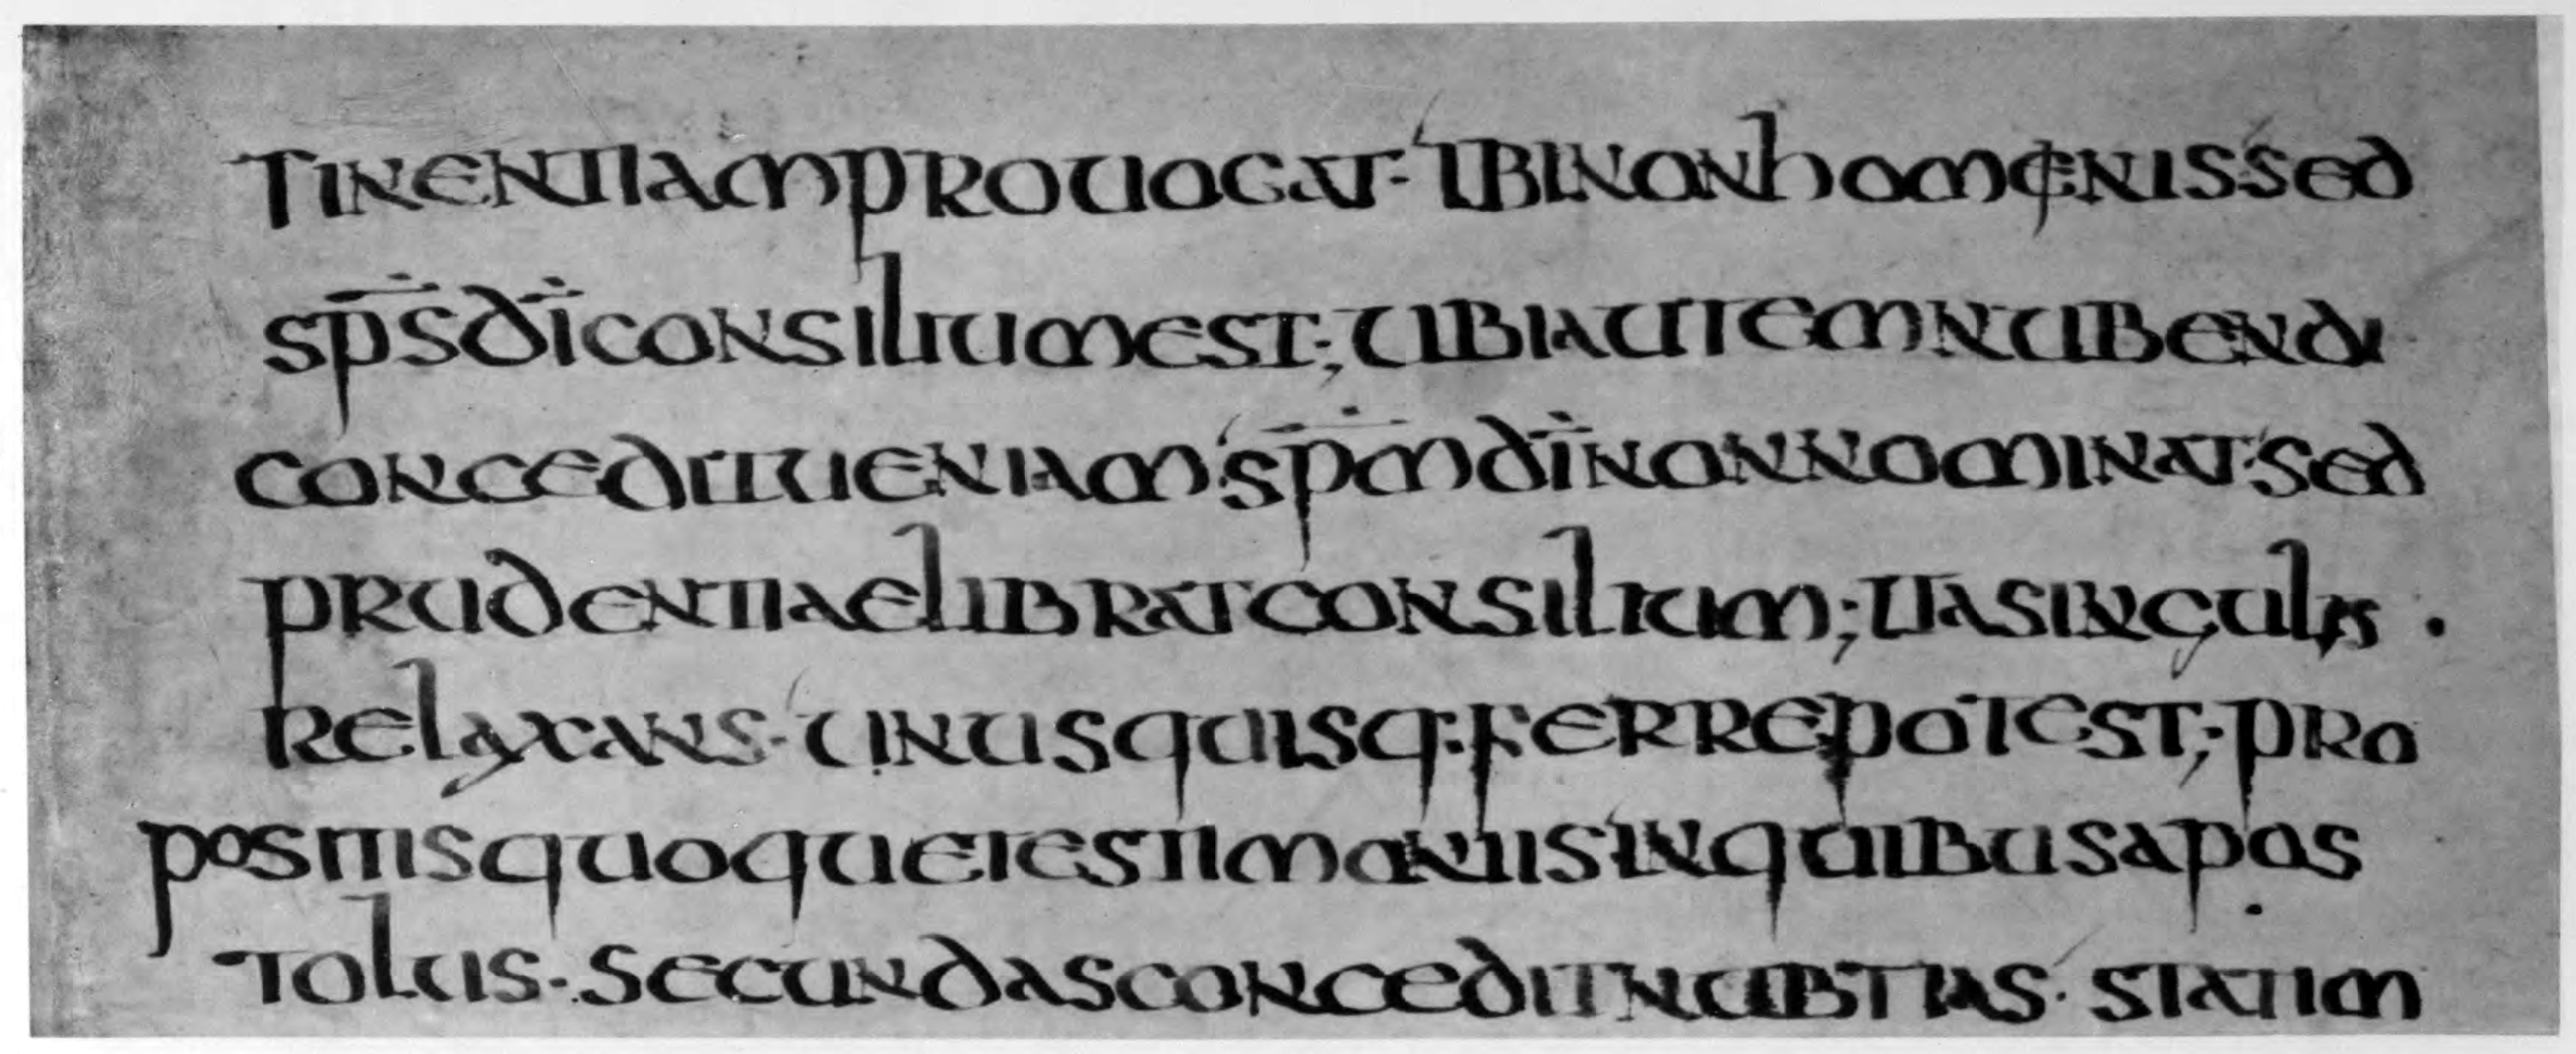 TINENTIAMPROUOCAT· IBINONhOMENIS·Sed
sp̄sdīCONSILIUMEST·; UBIAUTEMNUBENdI
CONCEdITUENIAM·sp̄mdīNONNOMINAT·Sed
PRUdENTIAELIBRATCONSILIUM·; ITASINGULIS ·
RELAXANS· UNUSQUISQ:FERREPOTEST·; PRO
POSITISQUOQUETESTIMONIISINQUIBUSAPOS
TOLUS· SECUNdASCONCEdITNUBTIAS· STATIM